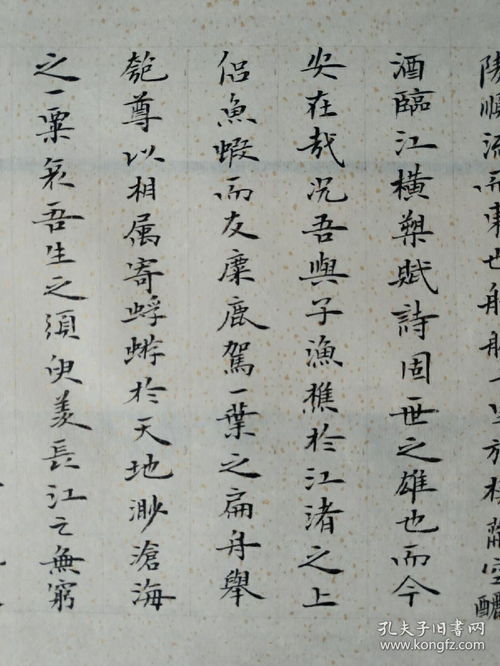 陵順流而東也舳里旗蔽空釃
酒臨江橫槊賦詩固一世之雄也而今
安在哉況吾與子漁樵於江渚之上
侶魚蝦而友麋鹿駕一葉之扁舟舉
匏尊以相属寄蜉蝣於天地渺滄海
之一粟哀吾生之須臾羨長江之無窮
孔夫子旧书网
www.kongfz.com